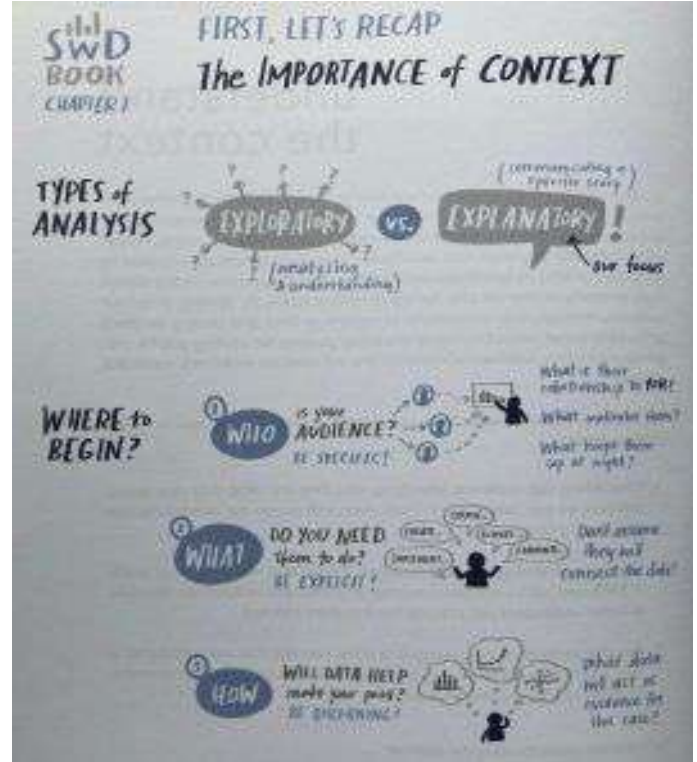 SWD
BOOK
CHAPTER 1
FIRST, LET'S RECAP
The IMPORTANCE of CONTEXT
TYPES of
ANALYSIS
? ? ? ? ? ? ? ?
EXPLORATORY
(analyzing
& understanding)
VS.
(communicating a
specific story)
EXPLANATORY!
our focus
WHERE to
BEGIN?
1
WHO
is your
AUDIENCE?
BE SPECIFIC!
What is their
relationship to YOU?
What motivates them?
What keeps them
up at night?
2
WHAT
DO YOU NEED
them to do?
BE EXPLICIT!
Don't assume
they will
connect the dots!
3
HOW
WILL DATA HELP
make your point?
BE DISCERNING!
What data
will act as
evidence for
the case?